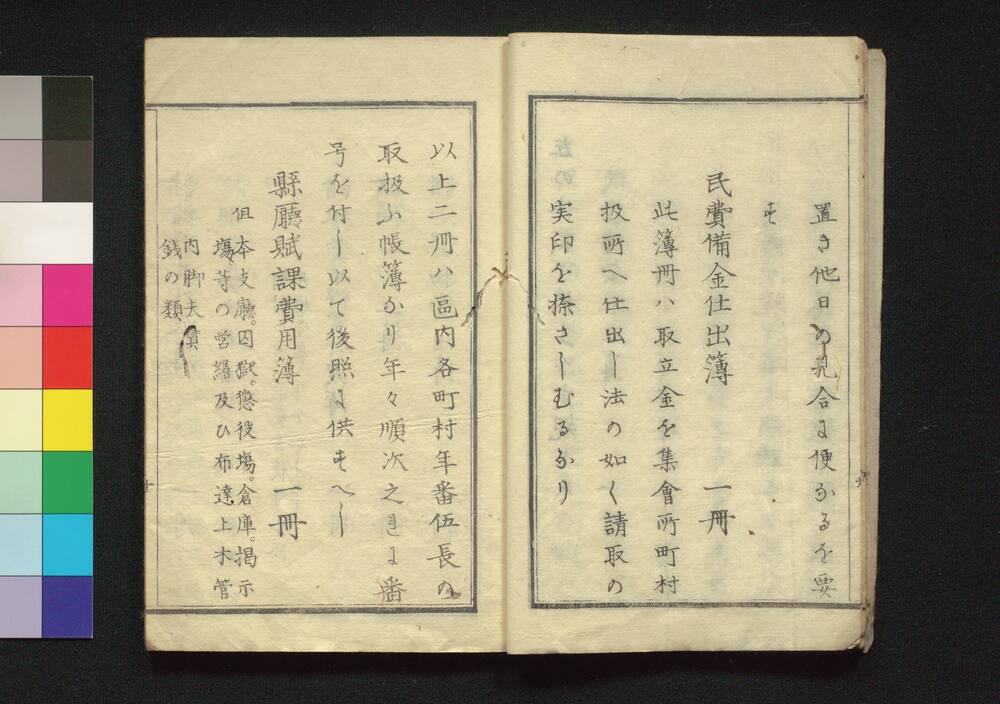 置き他日の見合に便なるを要
す
民費備金仕出簿 一冊
此簿冊ハ取立金を集會所町村
扱所へ仕出し法の如く請取の
実印を捺さしむるなり
以上二冊ハ區内各町村年番伍長の
取扱ふ帳簿なり年々順次之れに番
号を付し以て後照に供すへし
縣廳賦課費用簿 一冊
但本支廳。囚獄。懲役塲。倉庫。掲示
塲等の営繕及ひ布達上木管
内脚夫賃
銭の類